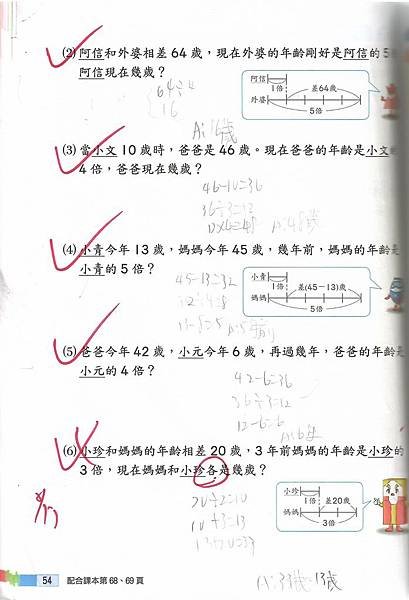 (2) 阿信和外婆相差64歲，現在外婆的年齡剛好是阿信的5
阿信現在幾歲？
阿信
1倍
差64歲
外婆
5倍
64÷4
16
A:16歲
(3) 當小文10歲時，爸爸是46歲。現在爸爸的年齡是小文
4倍，爸爸現在幾歲？
46-10=36
36÷3=12
12×4=48 A:48歲
(4) 小青今年13歲，媽媽今年45歲，幾年前，媽媽的年齡是
小青的5倍？
小青
1倍
差(45－13)歲
媽媽
5倍
45-13=32
32÷4=8
13-8=5 A:5年前
(5) 爸爸今年42歲，小元今年6歲，再過幾年，爸爸的年齡是
小元的4倍？
42-6=36
36÷3=12
12-6=6
A:6年
(6) 小珍和媽媽的年齡相差20歲，3年前媽媽的年齡是小珍的
3倍，現在媽媽和小珍各是幾歲？
小珍
1倍
差20歲
媽媽
3倍
20÷2=10
10+3=13
13+20=33
A:33歲.13歲
54 配合課本第68、69頁